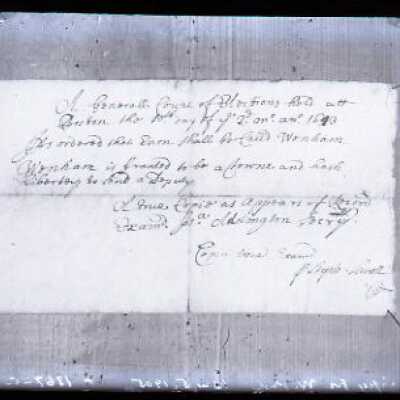 A Generall Court of Elections held att
Boston the 10th day of ye 3d mo. 1643
Its ordered that Enon shall be Called Wenham
Wenham is Granted to be a Towne and hath
Liberty to send a Deputy
A true Copie as Appears of Record
Examd. Isa Addington Secry.
Copia vera Examd